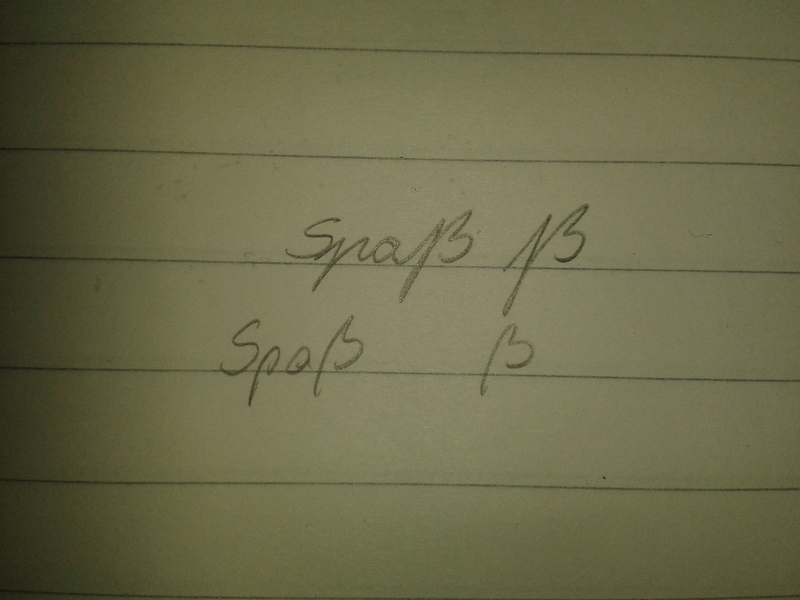 Spaß ß
Spaß ß